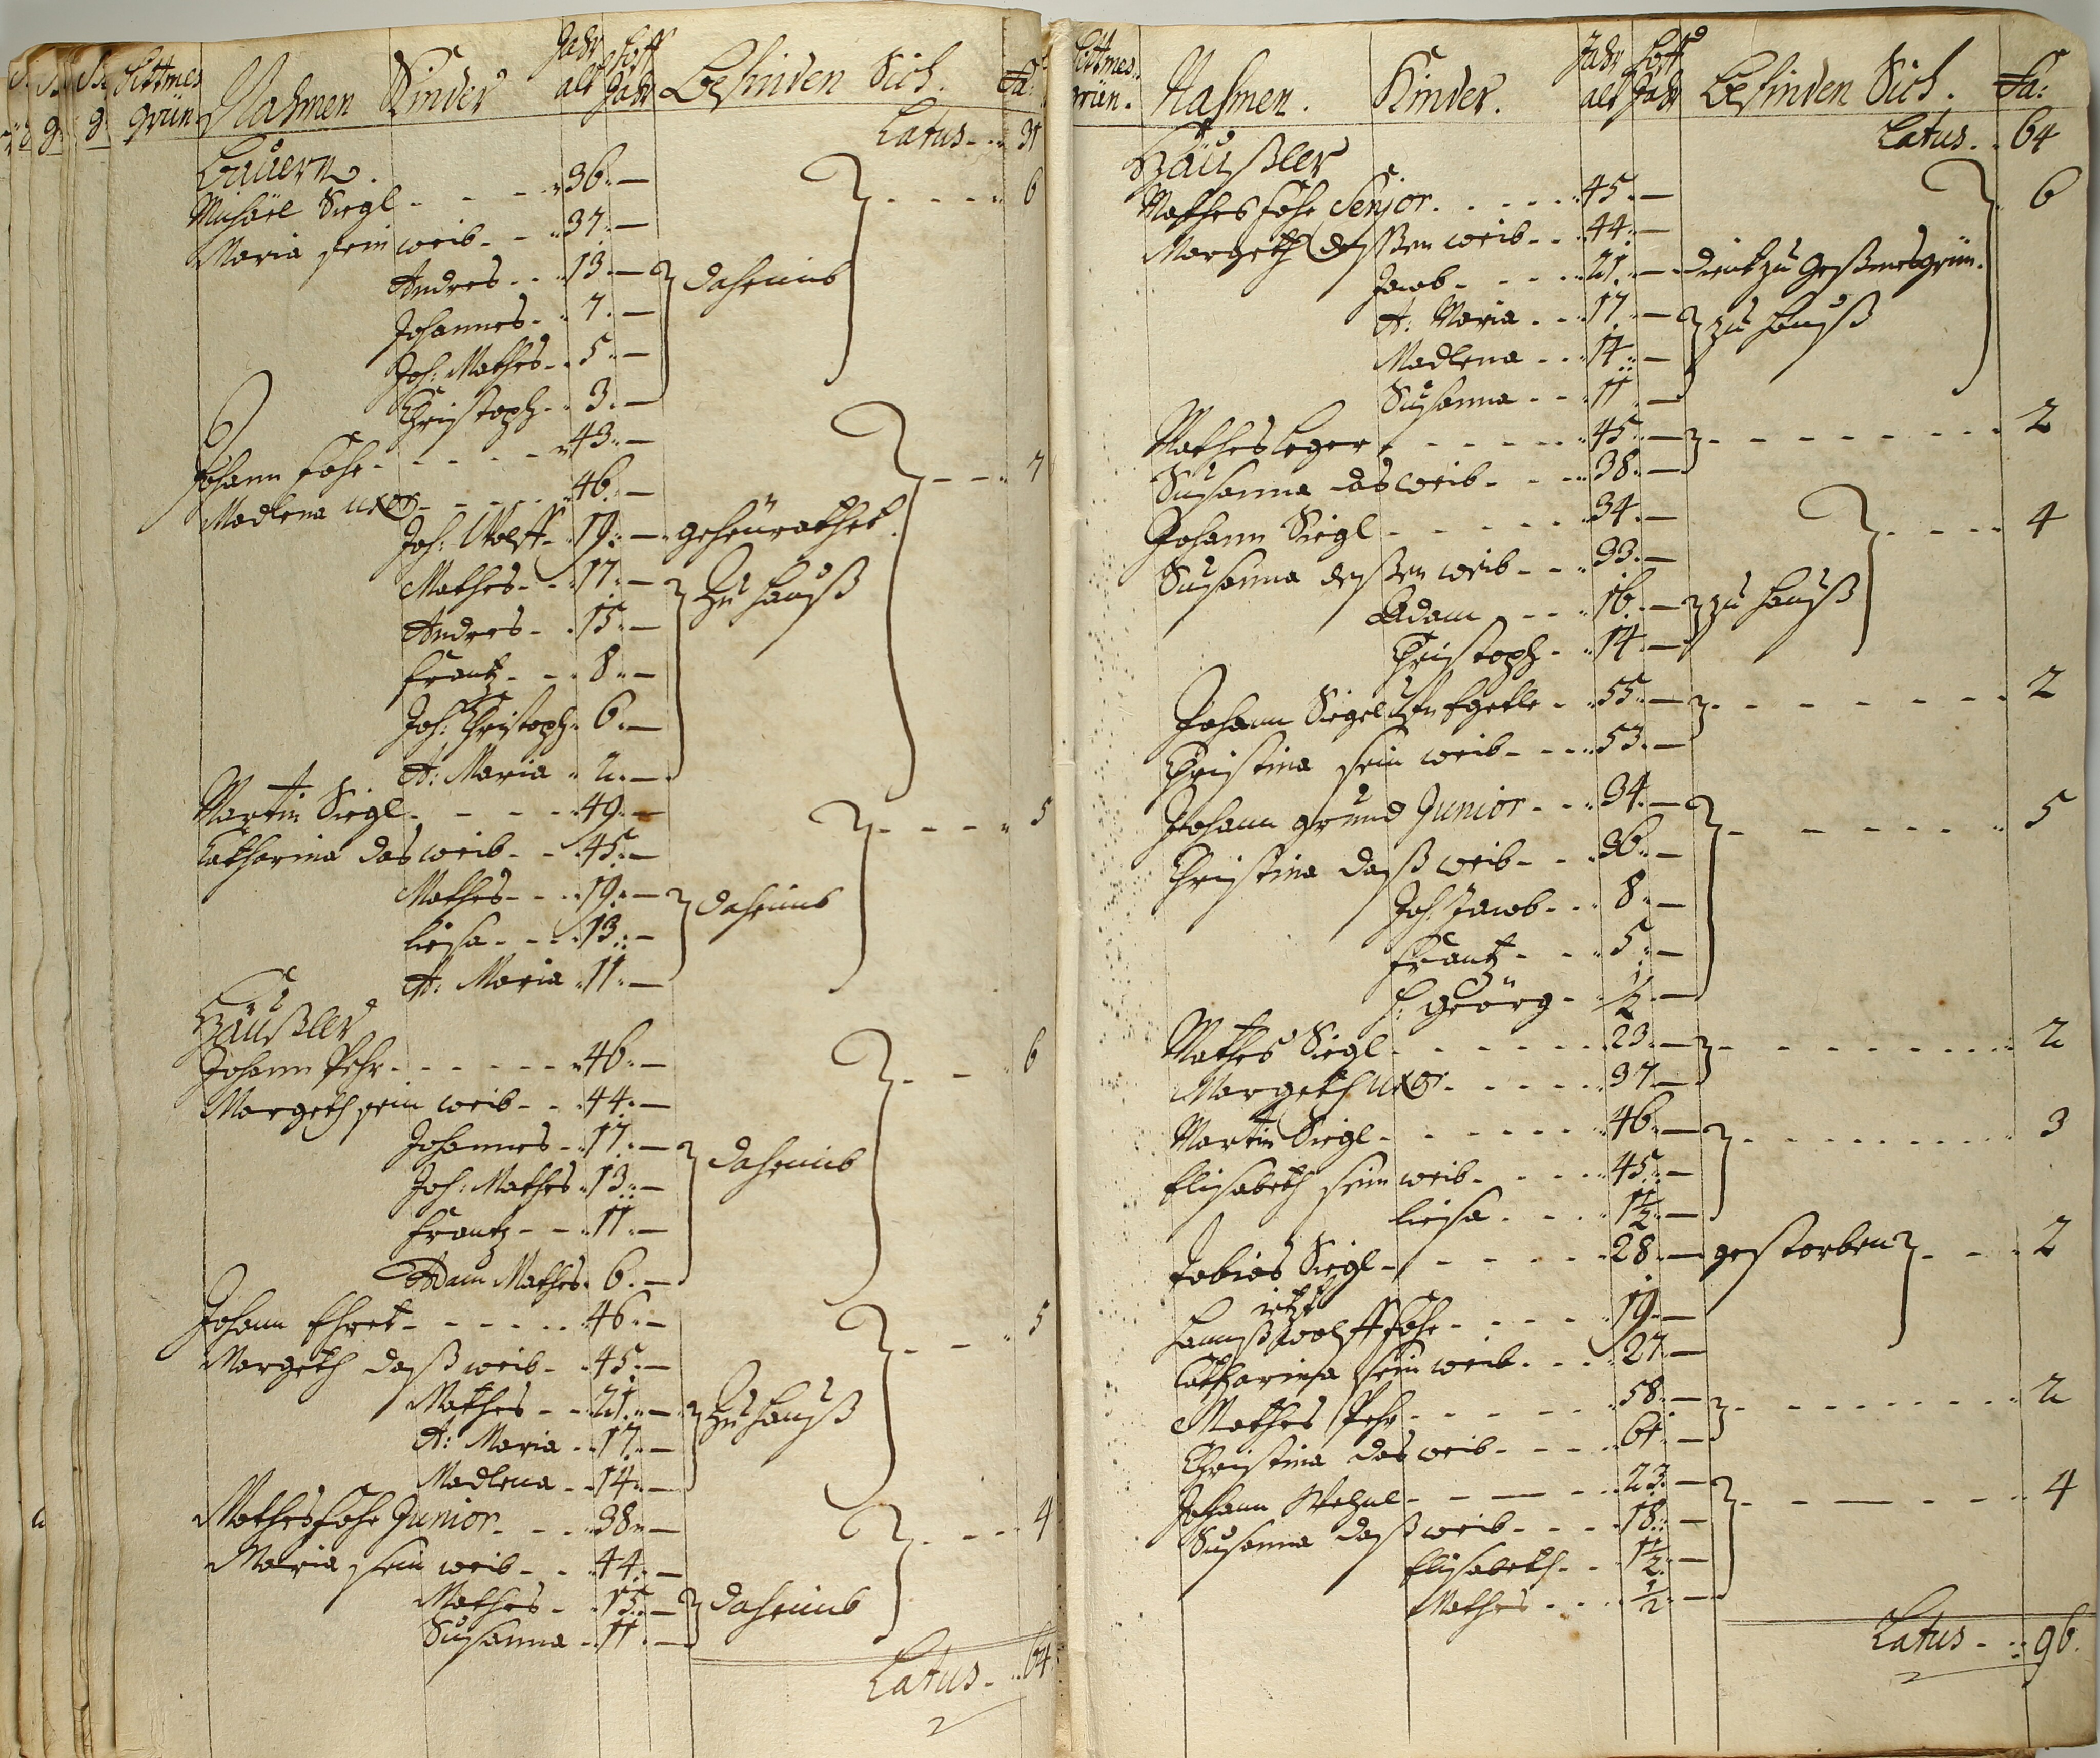 Littmes
grün
Nahmen Kinder Jahr alt Hoff Jahr Befinden Sich. Sa:
Latus - - 31
Bauern.
Michäel Siegl - - - 36 - 6
Maria sein weib - - 37 -
Andres - - 13 - daheimb
Johannes - 7 -
Joh: Mathes - 5 -
Christoph - 3 -
Johann Fohr - - - 43 - 7
Madlena uxor - - - 46 -
Joh: Wolff - 19 - geheürathet.
Mathes - - 17 - Zu Hauß
Andres - 15 -
Frantz - - 8 -
Joh: Christoph - 6 -
A: Maria - 2 -
Martin Siegl - - - 49 - 5
Catharina das weib - - 45 -
Mathes - - 19 - daheimb
Liesa - - - 13 -
A: Maria 11 -
Häußler
Johann Pehr - - - 46 - 6
Margeth sein weib - - 44 -
Johannes - 17 - daheimb
Joh: Mathes 13 -
Frantz - - 11 -
Adam Mathes 6 -
Johann - - - 46 - 5
Margeth daß weib - 45 -
Mathes - - 21 - Zu Hauß
A: Maria - 17 -
Madlena - 14 -
Mathes Fohr Junior - - 38 - 4
Maria sein weib - - 44 -
Mathes - 15 - daheimb
Susanna - 11 -
Latus - 64
Littmes
grün.
Nahmen. Kinder. Jahr alt Hoff Jahr Befinden Sich. Sa:
Latus - - 64
Häußler
Mathes Fohr Senjor - - - 45 - 6
Margeth deßen weib - - 44 -
Jacob - - - 21 - dient zu Geßmesgrün.
A: Maria - - 17 - zu Hauß
Madlena - - 14 -
Susanna - - 11 -
Mathes Leger - - - 45 - 2
Susanna das weib - - 38 -
Johann Siegl - - - 34 - 4
Susanna deßen weib - - 33 -
Adam - - - 16 - zu Hauß
Christoph - 14 -
Johann Siegel - 55 - 2
Christina sein weib - - - 53 -
Johann Grund Junior - - 34 - 5
Christina daß weib - - 36 -
Joh: Jacob - - 8 -
Frantz - - 5 -
H: Georg - - 1/2 -
Mathes Siegl - - - 23 - 2
Margeth uxor - - - 37 -
Martin Siegl - - - 46 - 3
Elisabeth sein weib - - - 45 -
Liesa - - - 1 1/2 -
Tobias Siegl - - - 28 - gestorben - - 2
ietzt
Hannß Wolff Fohr - - - 19 -
Catharina sein weib - - - 27 -
Mathes Pehr - - - 58 - 2
Christina das weib - - - 64 -
Johann - - - 23 - 4
Susanna daß weib - - - 18 -
Elisabeth - - 1 1/2 -
Mathes - - - 1/2 -
Latus - - 96.